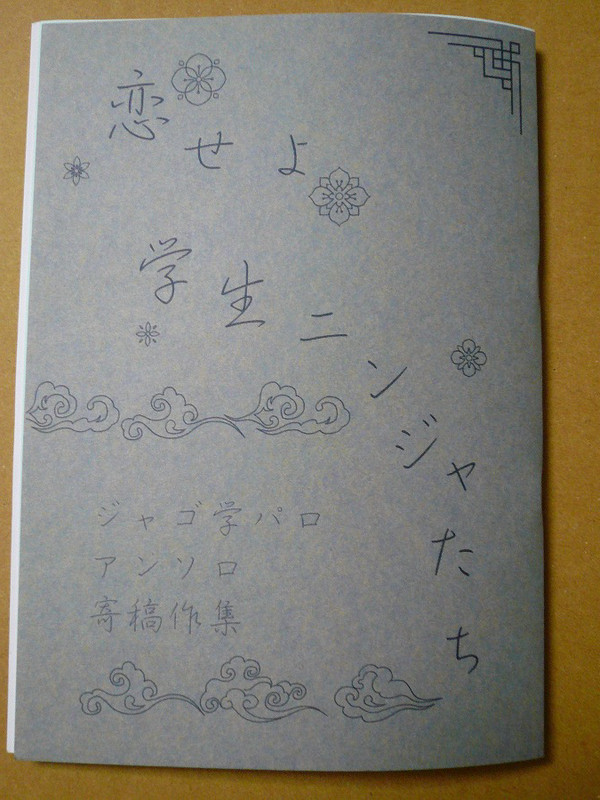 恋せよ
学生ニンジャたち
ジャゴ学パロ
アンソロ
寄稿作集